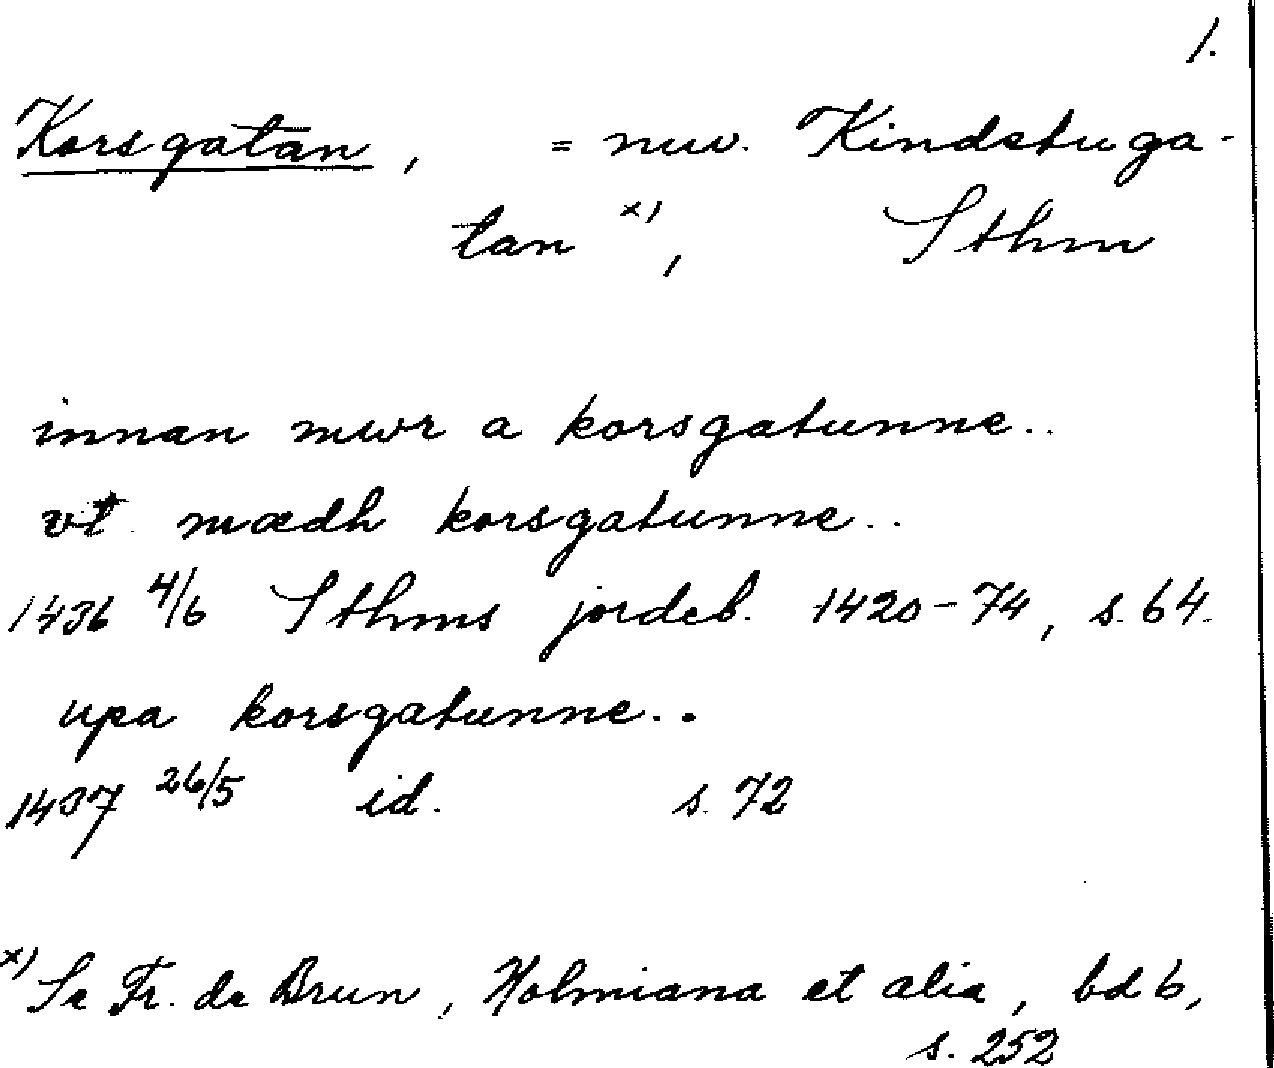 1.
Korsgatan, = nuv. Kindstuga-
tan x),   Sthm
innan mwr a korsgatunne..
vt mædh korsgatunne..
1436 4/6 Sthms jordeb. 1420-74, s. 64.
upa korsgatunne..
1437 26/5 id. s. 72
x) Se Fr. de Brun, Holmiana et alia, bd 6,
s. 252